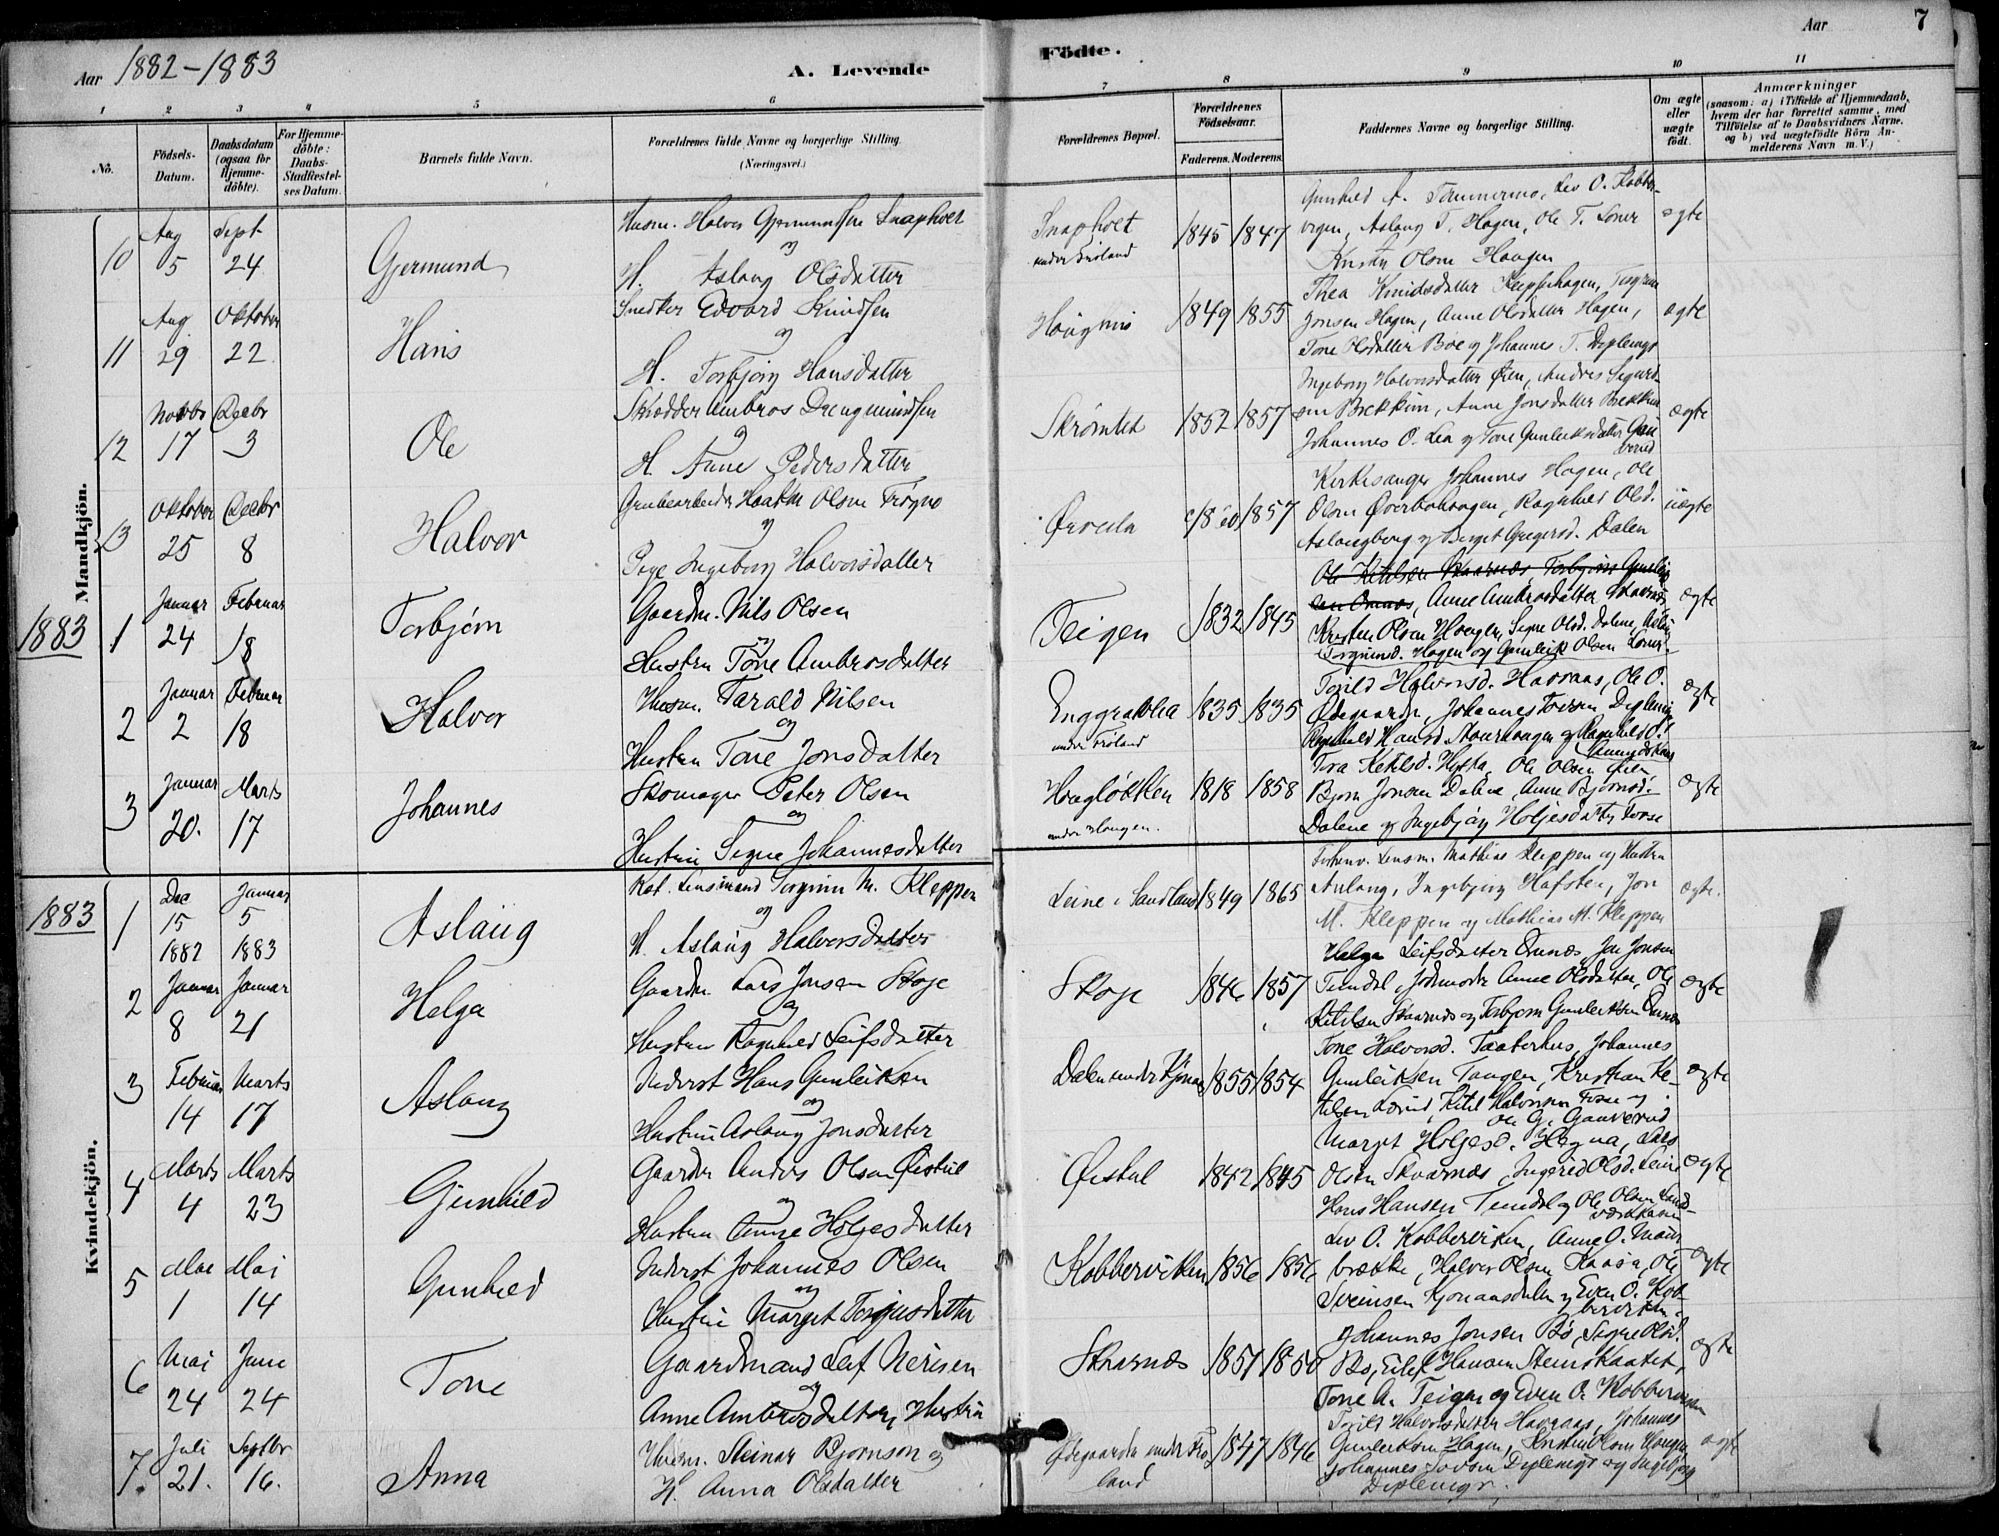 Aar 1882-1883
A. Levende
Födte.
Aar
7
1 2 3 4 5 6 7 8 9 10 11
No.
Födsels-Datum.
Daabsdatum (ogsaa for Hjemme-döbte).
For Hjemme-döbte: Daabs-Stadfæstel-ses Datum.
Barnets fulde Navn.
Forældrenes fulde Navne og borgerlige Stilling (Næringsvei.)
Forældrenes Bopæl.
Forældrenes Födselsaar.
Faderens. Moderens.
Faddernes Navne og borgerlige Stilling.
Om ægte eller uægte födt.
Anmærkninger
(saasom: a) i Tilfælde af Hjemmedaab,
hvem der har forrettet samme, med
Tilföielse af to Daabsvidners Navne.
og b) ved uægtefödte Börn An-
melderens Navn m.V.)
Mandkjön.
10 Aug 5 Sept 24 Gjermund
Husm. Halvor Gjermundsen Snapholt
og
H. Aslaug Olsdatter
Snapholt
1845 1847
Gunhild A. Tømmermo, Lev O. Kobber-
vigen, Aslaug T. Hagen, Ole T.
Kristen Olsen Haugen
ægte
11 Aug 29 Oktober 22 Hans
Snedker Edvard Knudsen
og
H. Torbjörg Hansdatter
Haugmo
1849 1855
Thea Knudsdatter Kleppehagen, Torgrim
Jonsen Hagen, Anne Olsdatter Hagen,
Tone Olsdatter Böe og Johannes T. Diplemyr
ægte
12 Novbr 17 Decbr 3 Ole
Skrædder Ambros Drengmundsen
og
H. Anne Pedersdatter
1852 1857
Ingeborg Halvorsdatter Øien, Andres Sigurd-
sen Brekkim, Anne Jonsdatter Brekkim
Johannes O. Lea og Tone Gunleiksdatter
ægte
13 Oktober 25 Decbr 8 Halvor
Grubearbeider Olsen
og
Pige Ingeborg Halvorsdatter
1857
Kirkesanger Johannes Hagen, Ole
Olsen Øverbøhaugen, Ragnhild Olsd.
Aslaugberg og Berget Gregersd. Dalen
uægte
1883
1 Januar 24 Februar 18 Torbjörn
Gaardm. Nils Olsen
og
Hustru Tone Ambrosdatter
Teigen
1832 1845
Ole Ketilsen Skaarnæs, Torbjörn Gunleik
sen Omnes, Anne Ambrosdatter Skaarnæs
Kristen Olsen Haugen, Signe Olsd. Dalene, Aslaug
Torgrimsd. Hagen og Gunleik Olsen
ægte
2 Januar 2 Februar 18 Halvor
Husm. Tarald Nilsen
og
Hustru Tone Jonsdatter
under Fröland
1835 1835
Torild Halvorsd. Havraas, Ole O.
Ødegaarden, Johannes Tovsen Diplemyr
Ragnhild Hansd. og Ragnhild O.
ægte
3 Januar 20. Marts 17 Johannes
Skomager Peter Olsen
og
Hustru Signe Johannesdatter
under Haugen.
1818 1858
Tora Ketilsd. Hysta, Ole Olsen Øien
Bjørn Jonsen Dalene, Anne Bjørnsd.
Dalene og Ingebjörg Holjesdatter
ægte
Kvindekjön.
1883
1 Dec 15 1882 Januar 5 1883 Aslaug
Kst. Lensmand Torgrim M. Kleppen
og
H. Aslaug Halvorsdatter
Leine i Sandland
1849 1865
Lensm. Mathias Kleppen og Hustru
Aslaug, Ingebjörg Hafsten, Jon
M. Kleppen og Mathias M. Kleppen
ægte.
2 Januar 8 Januar 21 Helga
Gaardm. Lars Jonsen Skoje
og
Hustru Ragnhild Leifsdatter
Skoje
1846 1857
Helga Leifsdatter Omnes, Jon Jonsen
Tindal, Jodmoder Anne Olsdatter, Ole
Ketilsen Skaarnæs og Torbjörn Gunleiksen Omnes
ægte
3 Februar 14 Marts 17 Aslaug
Inderst Hans Gunleiksen
og
Hustru Aslaug Jonsdatter
Dalen under
1855 1854
Tone Halvorsd. Taaterhus, Johannes
Gunleiksen Tangen, Kristian Ke-
tilsen Ketil Halvorsen og
Ole G. Gauverud
ægte
4 Marts 4 Marts 23 Gunhild
Gaardm. Anders Olsen Øistul
og
Hustru Anne Holjesdatter
Øistul
1842 1845
Marget Holjesd. Hegna, Lars
Olsen Skaarnæs, Ingerid Olsd. Leine
Hans Hansen Tindal og Ole Olsen
ægte
5 Mai 1 Mai 14 Gunhild
Inderst Johannes Olsen
og
Hustru Marget Torjusdatter
Kobberviken
1856 1856
Lev O. Kobberviken, Anne O.
brække, Halvor Olsen Kaasa, Ole
Sveinsen Kjonaasdalen og Even O. Kob-
berviken.
ægte
6 Mai 24 Juni 24 Tone
Gaardmand Leif Nerisen
og
Anne Ambrosdatter, Hustru
Skaarnæs
1851 1850
Johannes Jonsen Bö, Signe Olsd.
Bö, Eilef Hansen
Tone A. Teigen og Even O. Kobberviken
ægte
7. Juli 21. Septbr 16. Anna
Husm. Steinar Bjørnson og
H. Anna Olsdatter
Ødegaarden under Frö-
land
1847 1846
Torild Halvorsdatter Havraas, Johannes
Gunleiksen Hagen, Kristen Olsen Haugen
Johannes Tovsen Diplemyr og Ingebjörg
Diplemyr.
ægte